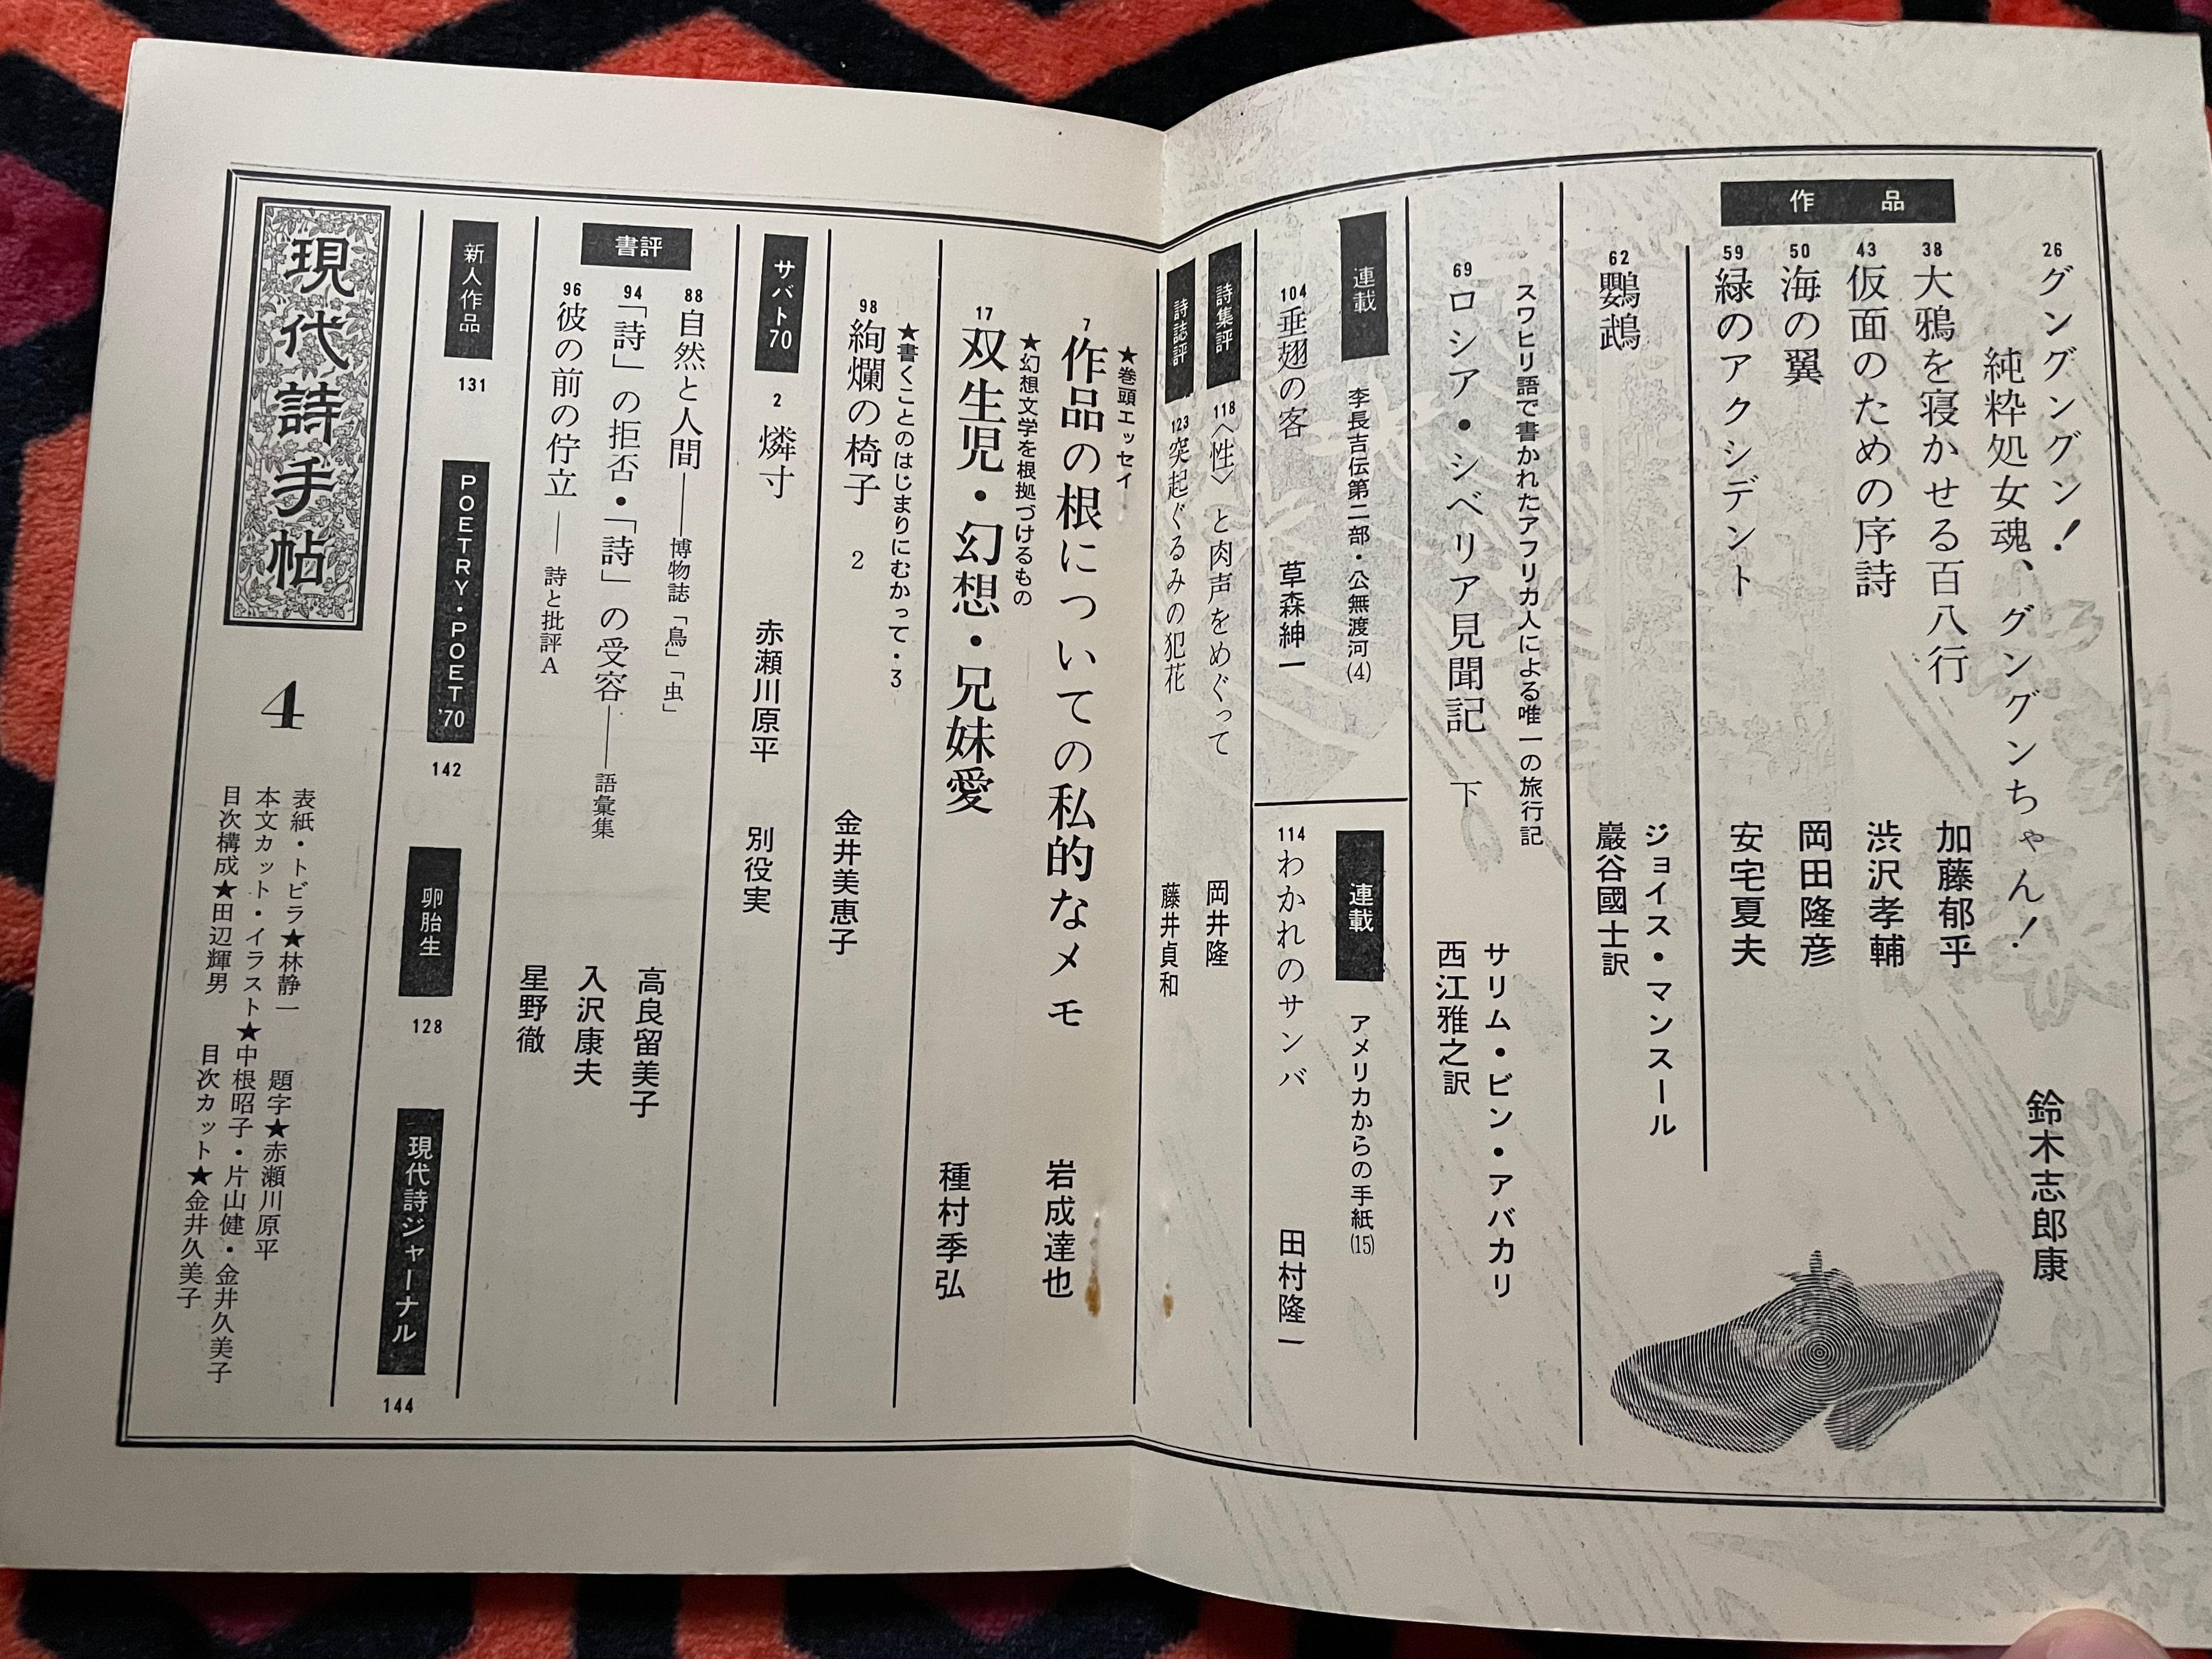 作品
26
グングングン!
純粋処女魂、グングンちゃん!
鈴木志郎康
38
大鴉を寝かせる百八行
加藤郁乎
43
仮面のための序詩
渋沢孝輔
50
海の翼
岡田隆彦
59
緑のアクシデント
安宅夏夫
62
鸚鵡
ジョイス・マンスール
巖谷國士訳
スワヒリ語で書かれたアフリカ人による唯一の旅行記
69
ロシア・シベリア見聞記 下
サリム・ビン・アバカリ
西江雅之訳
連載
李長吉伝第二部・公無渡河(4)
104
垂翅の客
草森紳一
連載
アメリカからの手紙(15)
114
わかれのサンバ
田村隆一
詩集評
118
〈性〉と肉声をめぐって
岡井隆
詩誌評
123
突起ぐるみの犯花
藤井貞和
★巻頭エッセイ
7
作品の根についての私的なメモ
岩成達也
★幻想文学を根拠づけるもの
17
双生児・幻想・兄妹愛
種村季弘
★書くことのはじまりにむかって・3
98
絢爛の椅子 2
金井美恵子
サバト70
2
燐寸
赤瀬川原平
別役実
書評
88
自然と人間――博物誌「鳥」「虫」
高良留美子
94
「詩」の拒否・「詩」の受容――語彙集
入沢康夫
96
彼の前の佇立――詩と批評A
星野徹
新人作品
131
POETRY・POET '70
142
卵胎生
128
現代詩ジャーナル
144
現代詩手帖
4
表紙・トビラ★林静一 題字★赤瀬川原平
本文カット・イラスト★中根昭子・片山健・金井久美子
目次構成★田辺輝男 目次カット★金井久美子